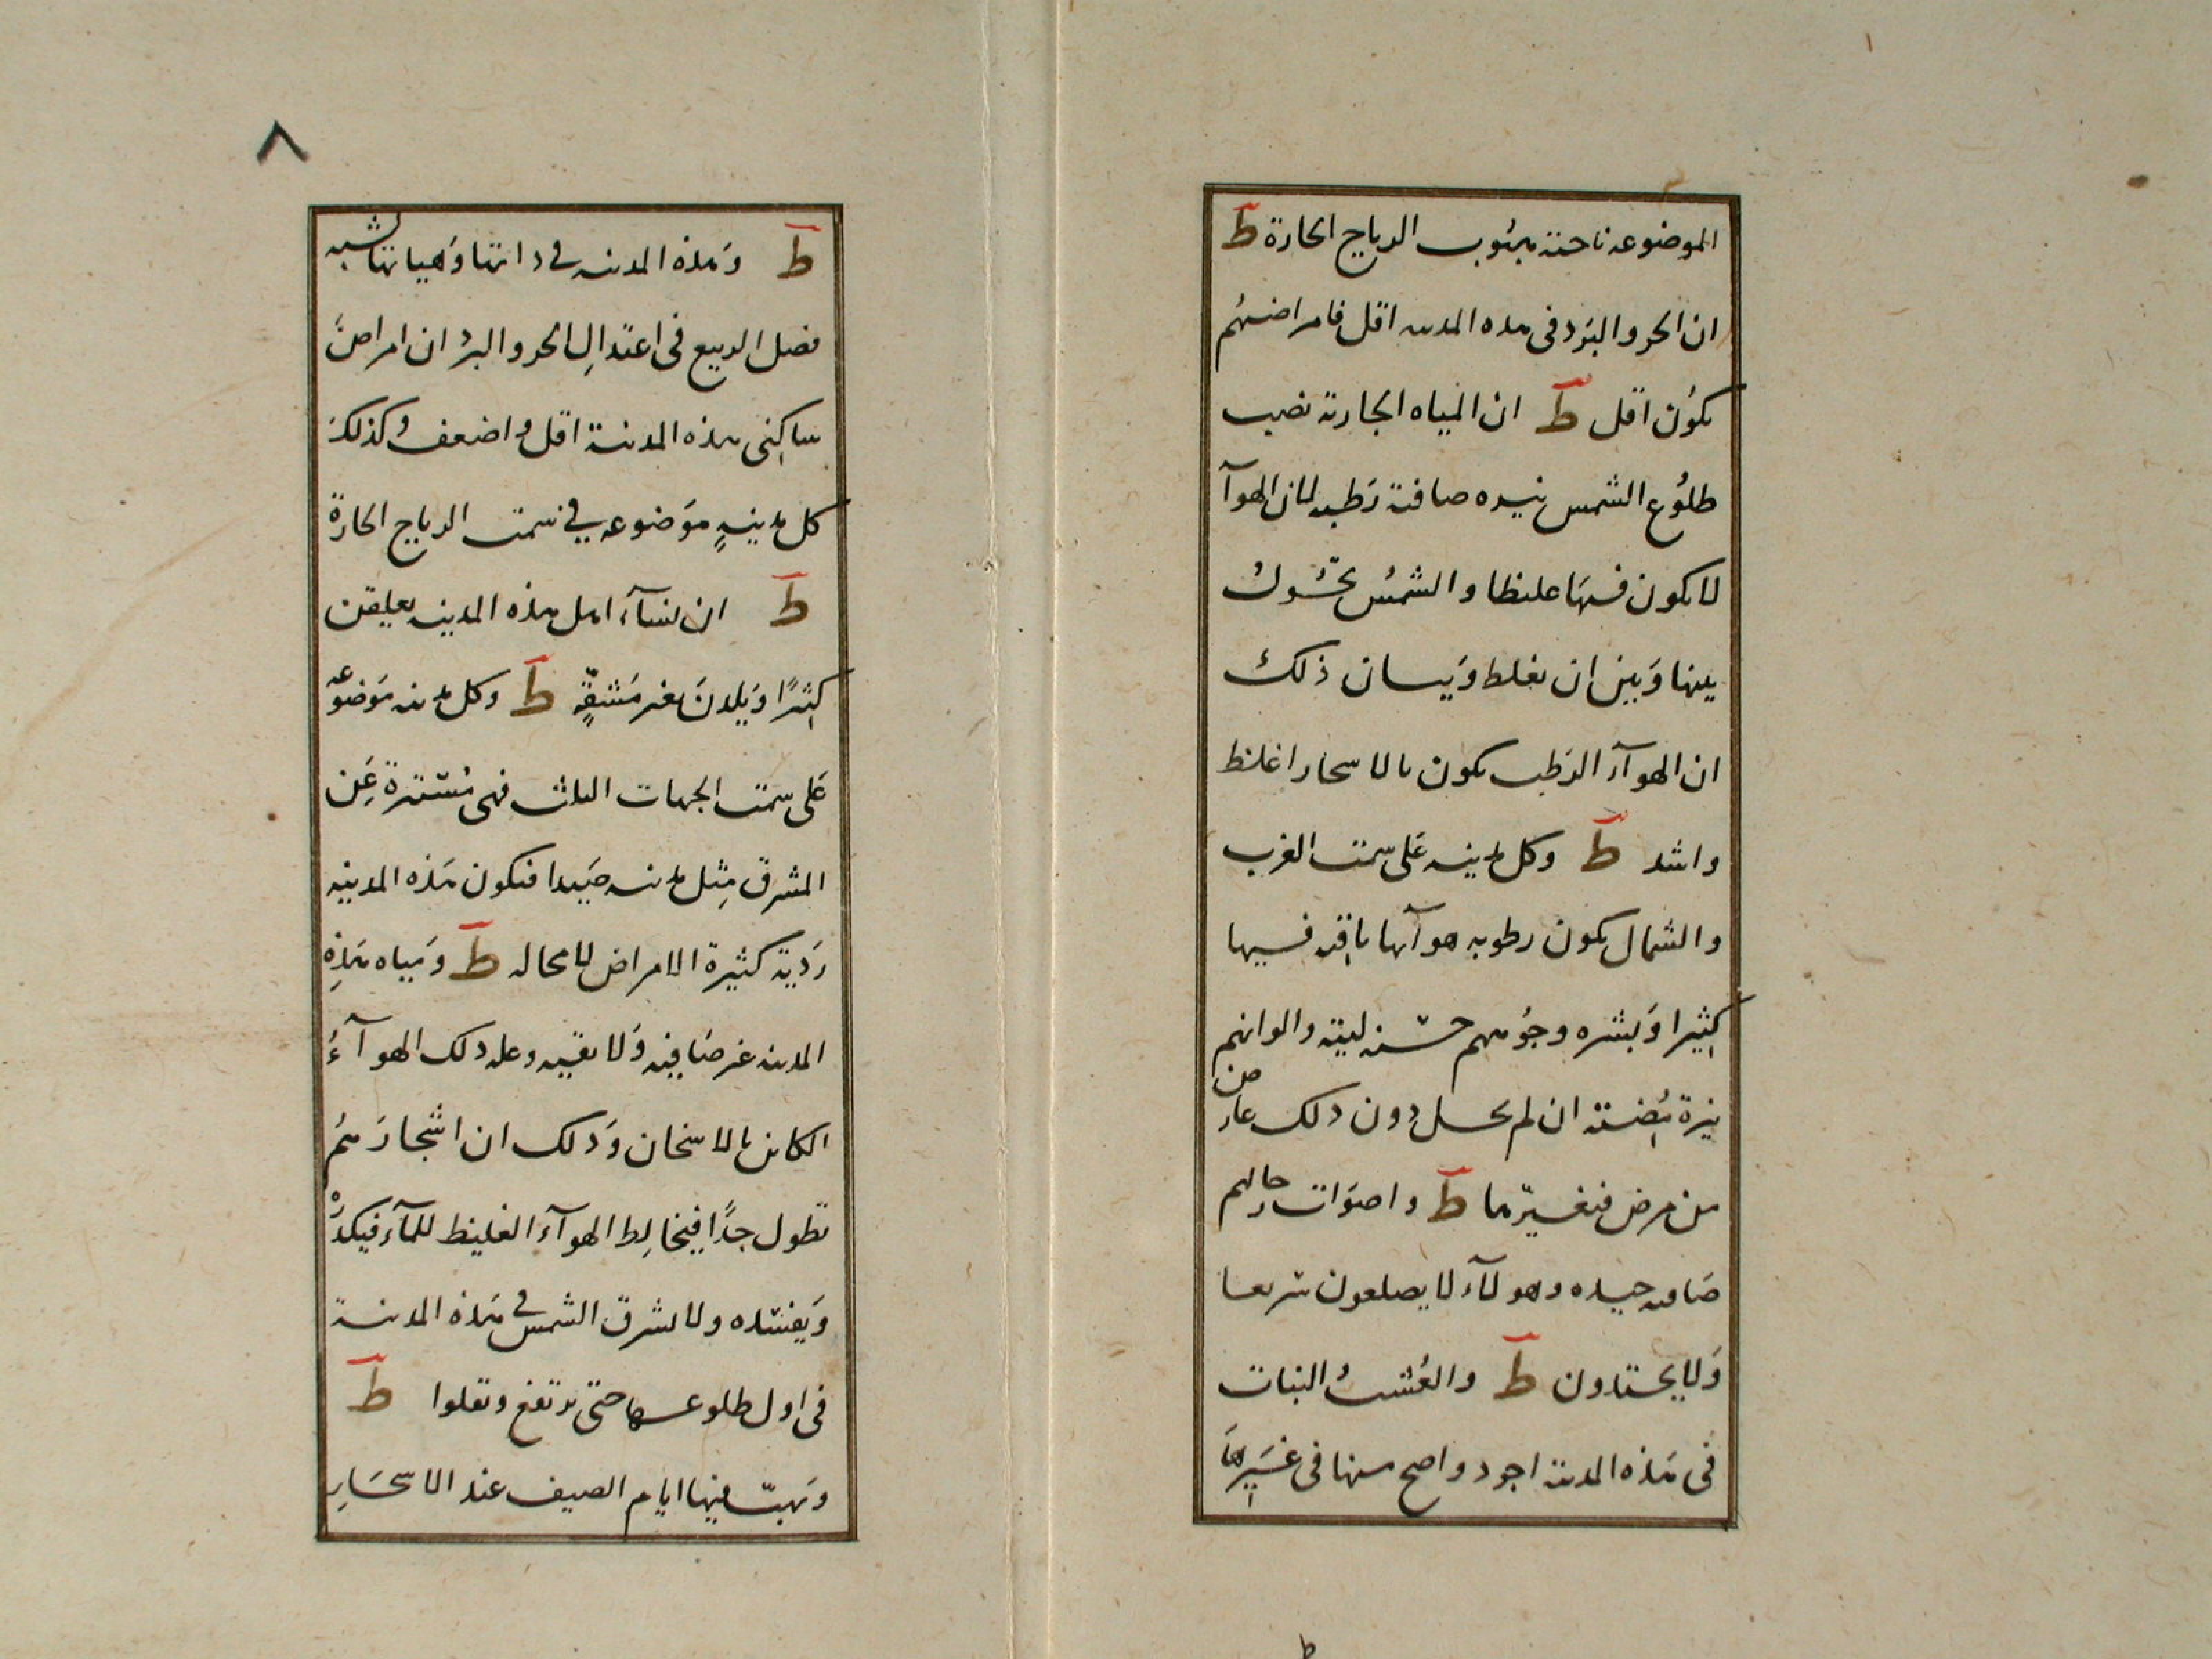 الموضوعه ناحية هبوب الرياح الحارة ط
ان الحر والبرد فى هذه المدينه اقل فامراضهم
يكون اقل ط ان المياه الجارية نصب
طلوع الشمس نيره صافية رطبه لان الهوآ
لا يكون فيها غليظا والشمس تحول
بينها وبين ان يغلظ وبيان ذلك
ان الهوآء الرطب يكون بالاسحار اغلظ
واشد ط وكل مدينه على سمت الغرب
والشمال يكون رطوبه هوآئها باقيه فيها
كثيرا وبشره وجوههم حسنه لينة والوانهم
نيرة بيضية ان لم يحل دون ذلك عارض
من مرض فتغيرها ط واصوات رجالهم
صافيه جيده وهولآء لا يصلعون سريعا
ولا يحتدون ط والعشب النبات
فى هذه المدينة اجود واصح منها فى غيرها
٨
ط وهذه المدينه فى ذاتها وهيأتها تشبه
فصل الربيع فى اعتدال الحر والبرد ان امراض
ساكنى هذه المدينة اقل واضعف وكذلك
كل مدينةٍ موضوعه فى سمت الرياح الحارة
ط ان نسآء اهل هذه المدينه يعلقن
كثيرًا ويلدن بغير مشقةٍ ط وكل مدينه موضوعه
على سمت الجهات الثلث فهى مستترة عن
المشرق مثل مدينه صيدا فتكون هذه المدينه
ردية كثيرة الامراض لا محاله ط ومياه هذه
المدينه غير صافيه ولا نقيه وعله ذلك الهوآءُ
الكاين بالاسخان وذلك ان اشجارهم
تطول جدًا فيخالط الهوآء الغليظ للمآء فيكدره
ويفسده ولا تشرق الشمس فى هذه المدينة
فى اول طلوعها حتى ترتفع وتعلوا ط
وتهبّ فيها ايام الصيف عند الاسحار
ط